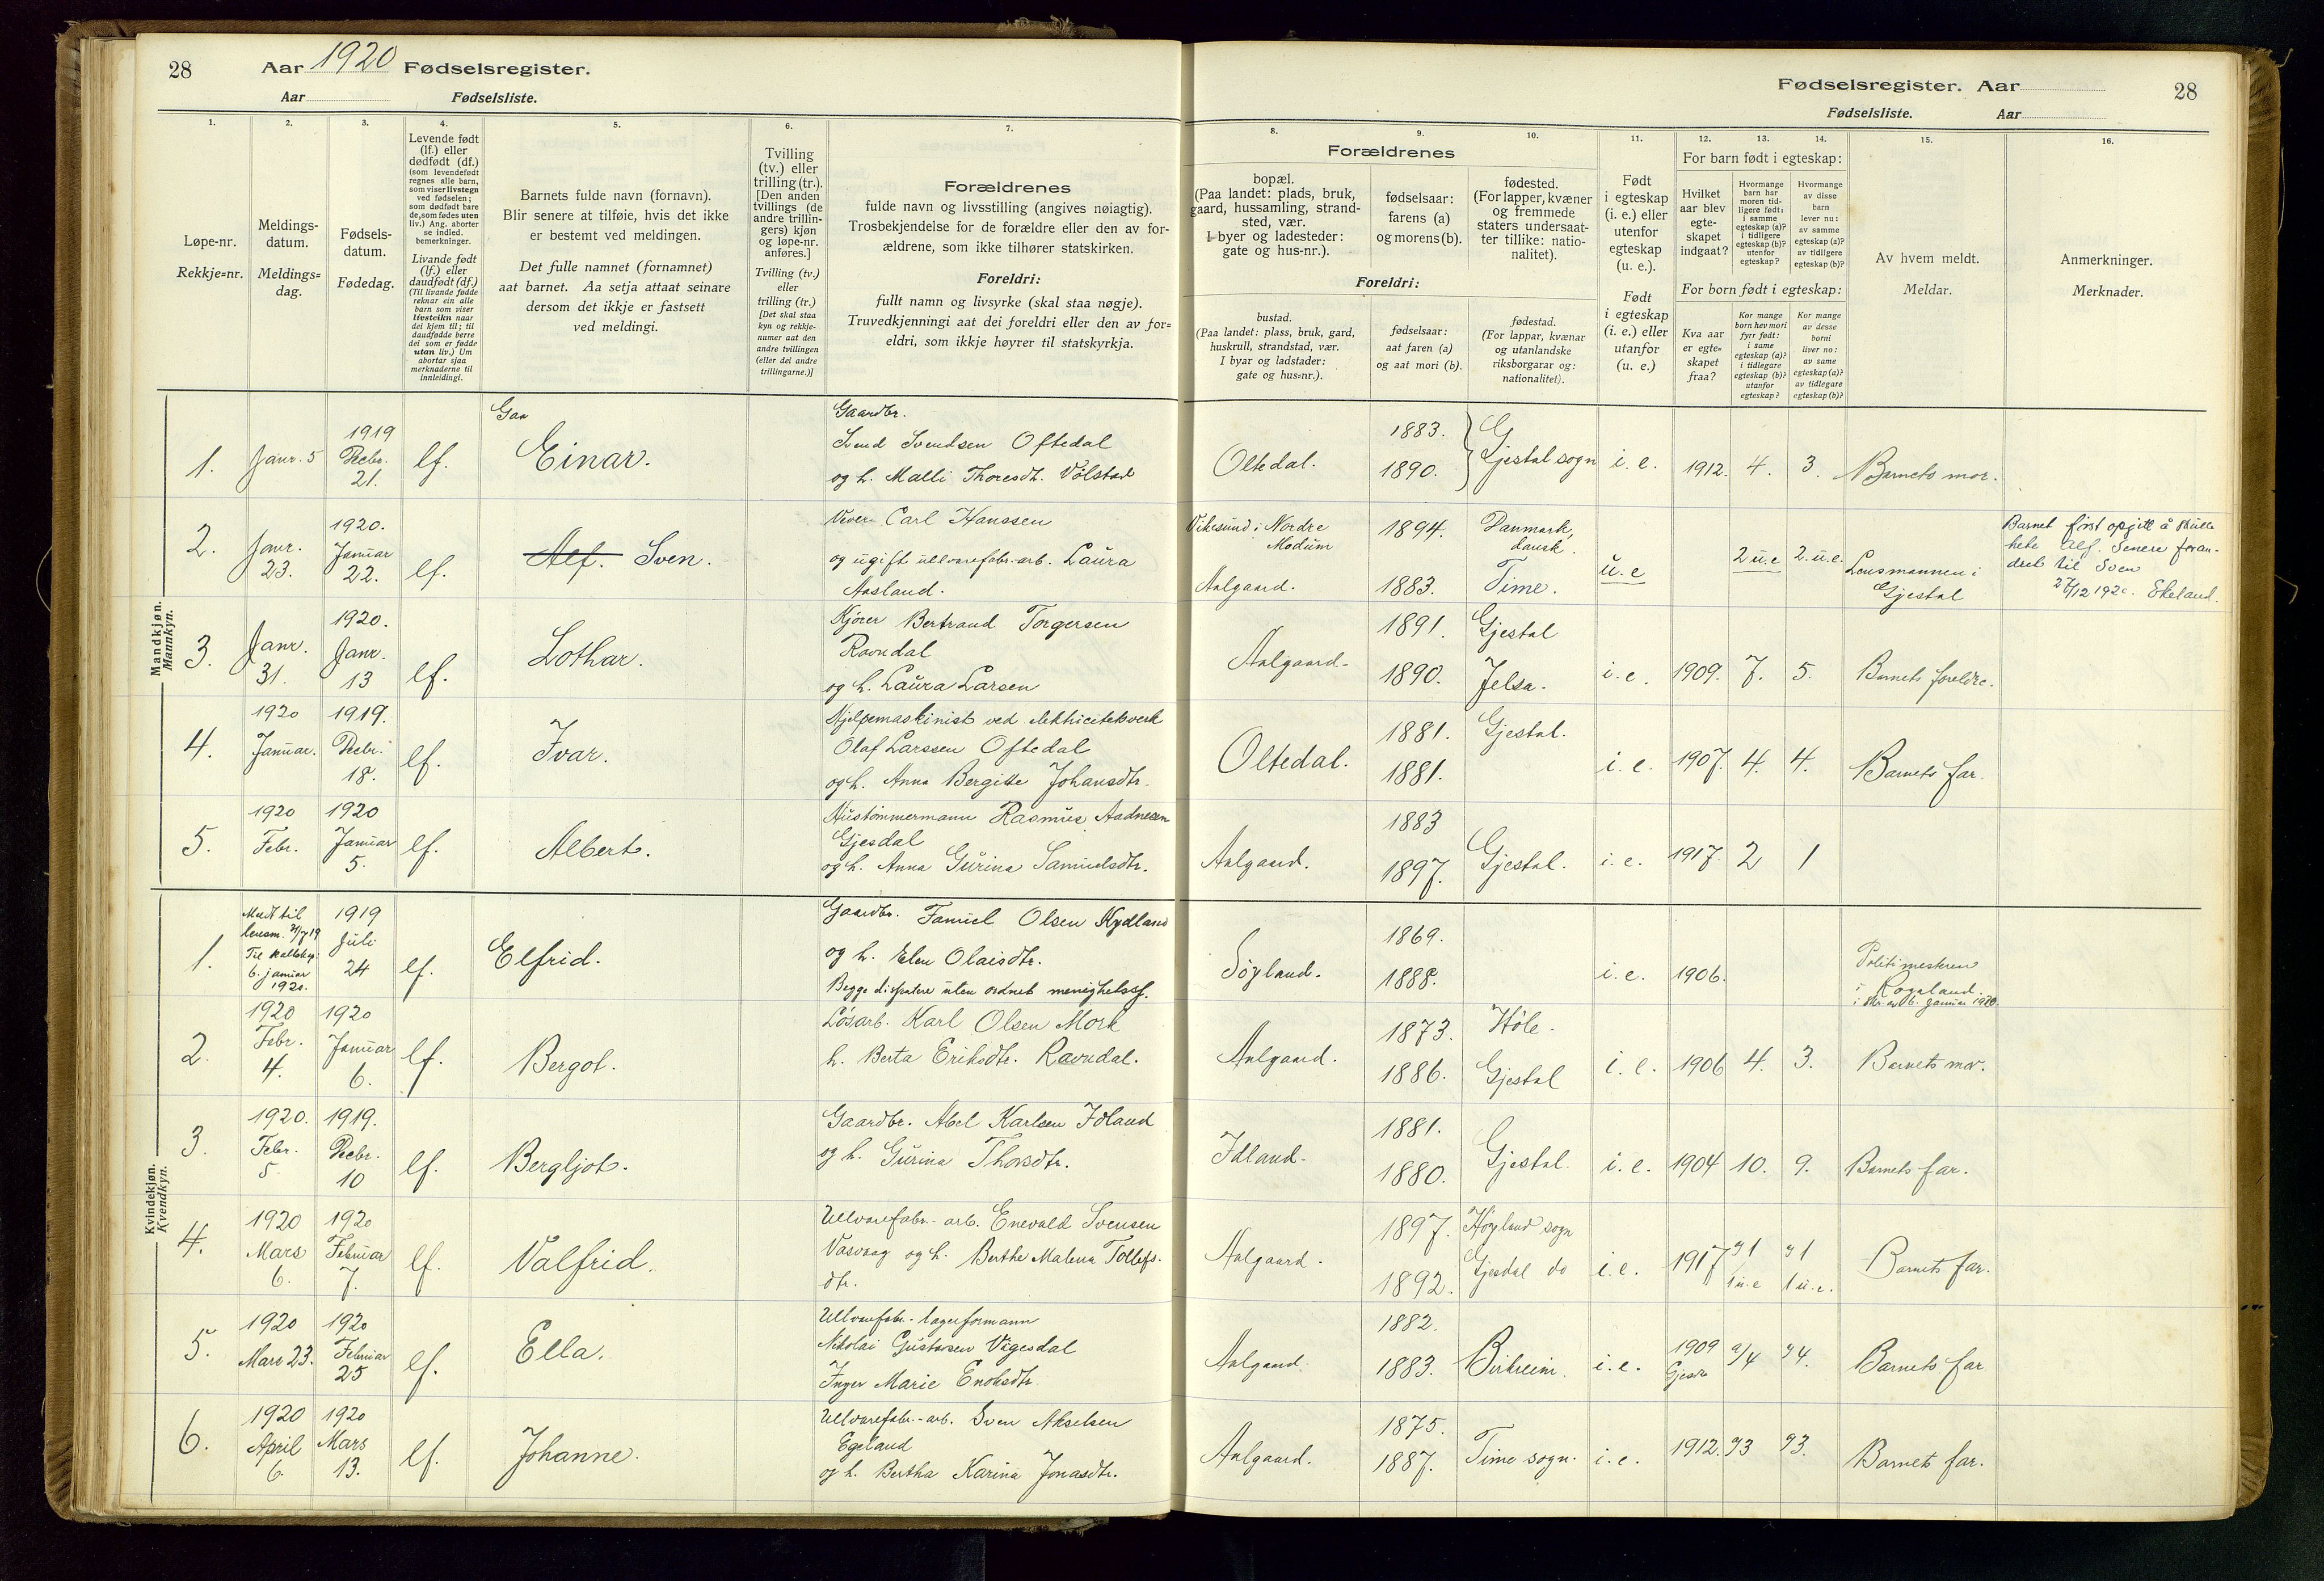 28
Aar 1920 Fødselsregister.
Aar
Fødselsliste.
1.
2.
3.
4.
5.
6.
7.
Løpe-nr.
Rekkje=nr.
Meldings-
datum.
Meldings=
dag.
Fødsels-
datum.
Fødedag.
Levende født
(lf.) eller
dødfødt (df.)
(som levendefødt
regnes alle barn,
som viser livstegn
ved fødselen;
som dødfødt bare
de, som fødes uten
liv.) Ang. aborter
se indled.
bemerkninger.
Livande født
(lf.) eller
daudfødt (df.)
(Til livande fødde
reknar ein alle
barn som viser
livsteikn naar
dei kjem til; til
daudfødde berre
dei som er fødde
utan liv.) Um
abortar sjaa
merknaderne til
innleidingi.
Barnets fulde navn (fornavn).
Blir senere at tilføie, hvis det ikke
er bestemt ved meldingen.
Det fulle namnet (fornamnet)
aat barnet. Aa setja attaat seinare
dersom det ikkje er fastsett
ved meldingi.
Tvilling
(tv.) eller
trilling (tr.).
[Den anden
tvillings (de
andre trillin-
gers) kjøn
og løpe-nr.
anføres.]
Tvilling (tv.)
eller
trilling (tr.)
[Det skal staa
kyn og rekkje-
numer aat den
andre tvillingen
(eller dei andre
trillingarne.)]
Forældrenes
fulde navn og livsstilling (angives nøiagtig).
Trosbekjendelse for de forældre eller den av for-
ældrene, som ikke tilhører statskirken.
Foreldri:
fullt namn og livsyrke (skal staa nøgje).
Truvedkjenningi aat dei foreldri eller den av for=
eldri, som ikkje høyrer til statskyrkja.
Fødselsregister. Aar
28
Fødselsliste.
Aar
8.
9.
10.
11.
12.
13.
14.
15.
16.
Forældrenes
bopæl.
(Paa landet: plads, bruk,
gaard, hussamling, strand-
sted, vær.
I byer og ladesteder:
gate og hus-nr.).
fødselsaar:
farens (a)
og morens (b).
fødested.
(For lapper, kvæner
og fremmede
staters undersaat-
ter tillike: natio-
nalitet).
Foreldri:
bustad.
(Paa landet: plass, bruk, gard,
huskrull, strandstad, vær.
I byar og ladstader:
gate og hus=nr.).
fødselsaar:
aat faren (a)
og aat mori (b).
fødestad.
(For lappar, kvænar
og utanlandske
riksborgarar og:
nationalitet).
Født
i egteskap
(i. e.) eller
utenfor
egteskap
(u. e.).
Født
i egteskap
(i. e.) eller
utanfor
(u. e.)
For barn født i egteskap:
Hvilket
aar blev
egte-
skapet
indgaat?
Hvormange
barn har
moren tid-
ligere født:
i samme
egteskap (a)?
i tidligere
egteskap (b)?
utenfor
egteskap?
Hvormange
av disse
barn
lever nu:
av samme
egteskap (a)?
av tidligere
egteskap (b)?
For born født i egteskap:
Kva aar
er egte=
skapet
fraa?
Kor mange
born hev mori
fyrr født:
i same
egteskap (a)?
i tidlegare
egteskap (b)?
utanfor
egteskap?
Kor mange
av desse
borni
liver no:
av same
egteskap (a)?
av tidlegare
egteskap (b)?
Av hvem meldt.
Meldar.
Anmerkninger.
Merknader.
Mandkjøn.
Mannkyn.
1. Janr. 5 1919 Decbr. 21. lf. Einar.
Gaardbr.
Svend Svendsen Oftedal
og h. Malli Thoresdt. Vølstad
Oltedal. 1883. 1890. Gjestal sogn i. e. 1912. 4. 3. Barnets mor.
2. Janr. 23. 1920. Januar 22. lf. Alf. Sven.
Vever Carl Hanssen
og ugift ullvarefabr.-arb. Laura
Aasland.
Vikesund i Nordre
Modum
Aalgaard.
1894. 1883.
Danmark,
dansk.
Time.
u. e 2 u. e 2. u. e.
Lensmannen i
Gjestal
Barnet først opgitt å skulle
hete Alf. Senere foran-
dret til Sven
27/12 1920. Ekeland.
3. Janr. 31. 1920. Janr. 13 lf. Lothar.
Kjører Bertrand Torgersen
Ravndal
og h. Laura Larsen
Aalgaard- 1891. 1890. Gjestal Jelsa. i. e. 1909. 7. 5. Barnets foreldre.
4. 1920 Januar. 1919. Decbr. 18. lf. Ivar.
Hjelpemaskinist ved elektricitetsverk
Olaf Larssen Oftedal
og h. Anna Bergitte Johansdtr.
Oltedal. 1881. 1881. Gjestal. i. e. 1907. 4. 4. Barnets far.
5. 1920 Febr. 1920 Januar 5. lf. Albert.
Hustømmermann Rasmus Aadnesen
Gjesdal
og h. Anna Gurina Samuelsdtr.
Aalgaard. 1883 1897. Gjestal. i. e. 1917. 2 1
Kvindekjøn.
Kvendkyn.
1. Meldt til
lensm. 31/7 19
6. januar
1920.
1919 Juli 24 lf. Elfrid.
Gaardbr. Olsen Kydland
og h. Elen Olaisdtr.
Begge dissentere uten ordnet menighetsf.
Søyland. 1869. 1888. i. e. 1906.
Politimesteren
i Rogaland.
i skr. av 6. januar 1920.
2. 1920 Febr. 4. 1920 Januar 6. lf. Bergot.
Løsarb. Karl Olsen Mork
h. Berta Eriksdtr. Ravndal.
Aalgaard. 1873. 1886. Høle. Gjestal i. e. 1906 4. 3. Barnets mor.
3. 1920. Febr. 5. 1919. Decbr. 10 lf. Bergljot.
Gaardbr. Abel Karlsen Idland
og h. Gurina Thorsdtr.
Idland- 1881. 1880. Gjestal. i. e. 1904 10. 9. Barnets far.
4. 1920 Mars 6. 1920 Februar 7. lf. Valfrid.
Ullvarefabr.-arb. Enevald Svensen
Vasvaag og h. Berthe Malena Tollefs-
dtr.
Aalgaard. 1897. 1892. Høyland sogn Gjesdal do i. e. 1917 1 1 u. e 1 1 u. e. Barnets far.
5. 1920 Mars 23. 1920 Februar 25 lf. Ella.
Ullvarefabr.-lagerformann
Nikolai Gustavsen Vågesdal
Inger Marie Enoksdtr.
Aalgaard. 1882. 1883. Birkreim. i. e. 1909 a/4 4. Barnets far
6. 1920 April 6. 1920 Mars 13. lf. Johanne.
Ullvarefabr.-arb. Sven Akselsen
Egeland
og h. Bertha Karina Jonasdtr.
Aalgaard. 1875. 1887. Time sogn. i. e. 1912. 3 3. Barnets far.